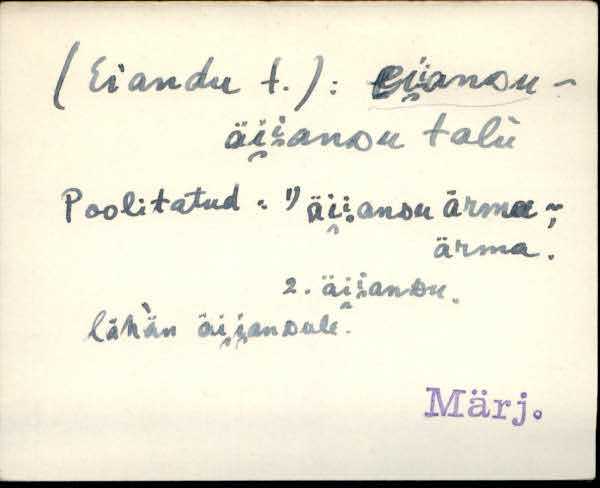 (Eiandu t.): eii̯ansu ~
äii̯ansu talù
Poolitatud: 1) äii̯ansu ärma ~;
ärma.
2. äii̯ansu.
lähä̀n äi̯i̯ansule.
Märj.